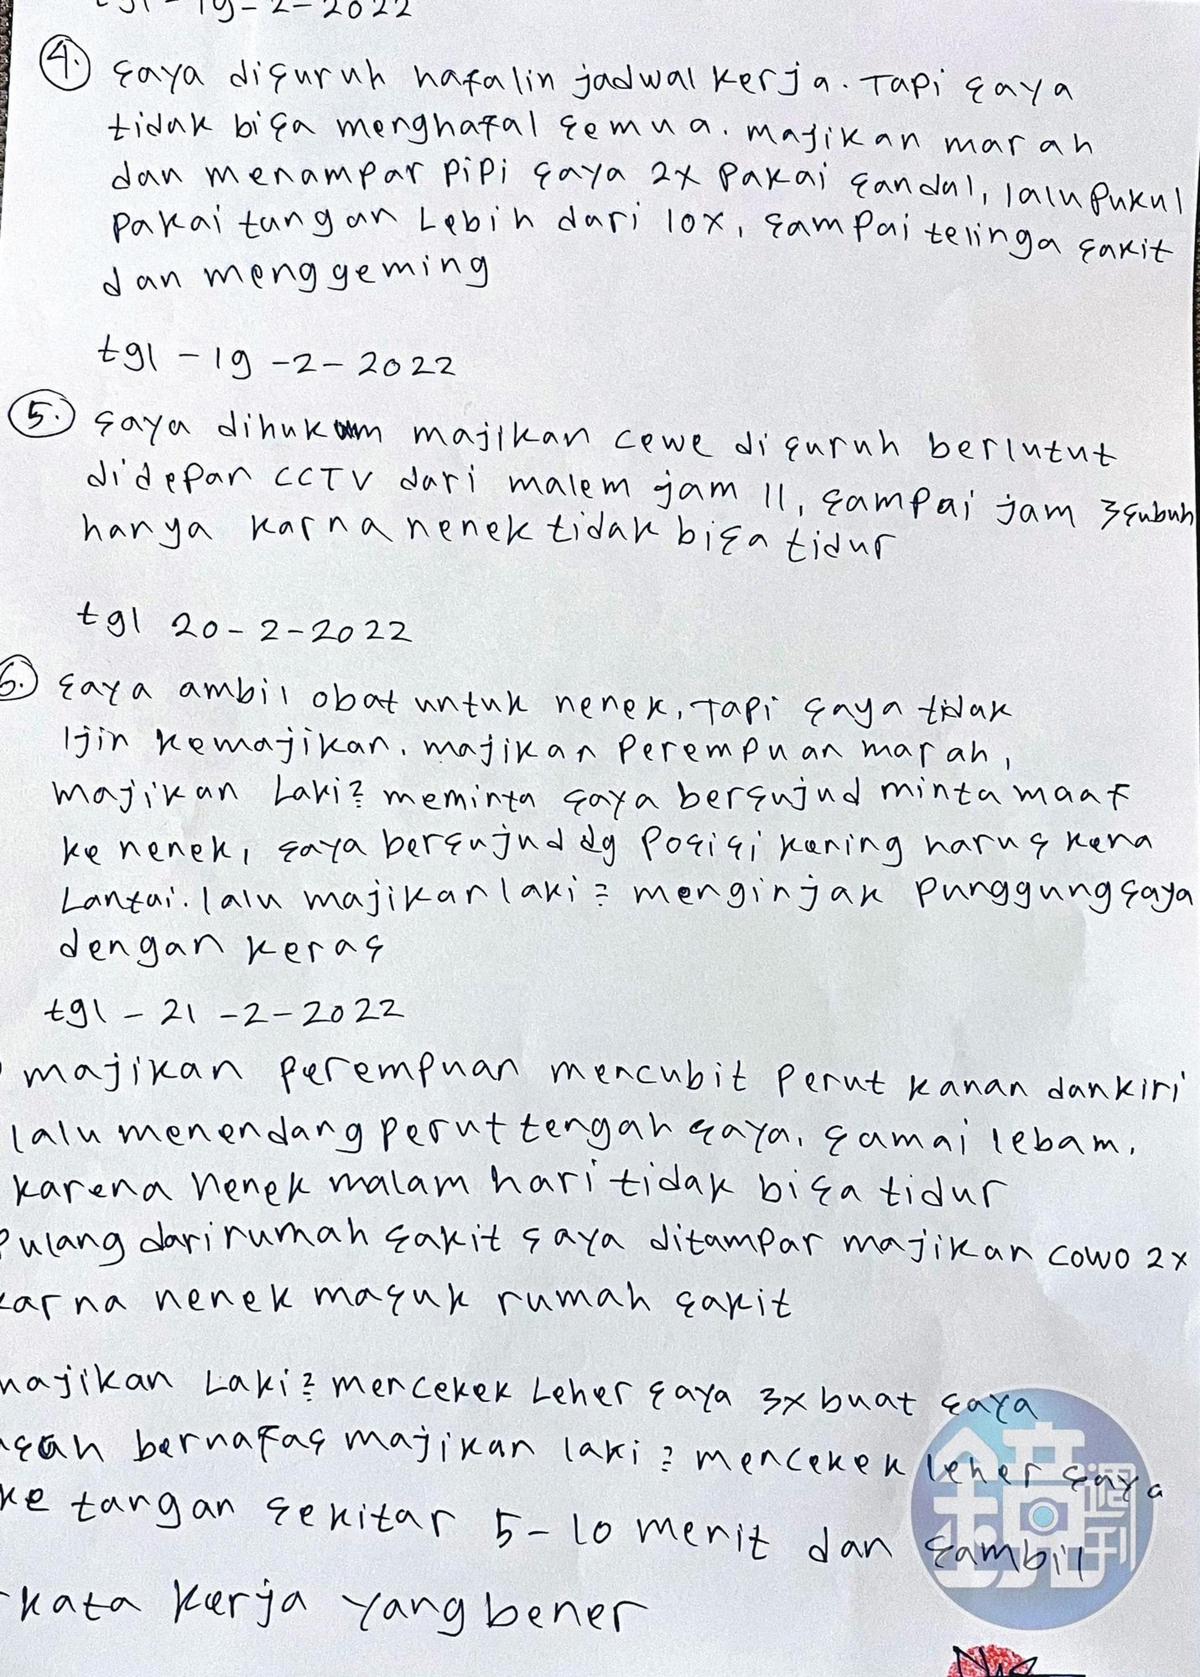 tgl - 19 - 2 - 2022
4. saya disuruh hafalin jadwal kerja. Tapi saya
tidak bisa menghafal semua. majikan marah
dan menampar pipi saya 2x pakai sandal, lalu pukul
pakai tangan Lebih dari 10x, sampai telinga sakit
dan menggeming
tgl - 19 - 2 - 2022
5. saya dihukum majikan cewe disuruh berlutut
didepan CCTV dari malem jam 11, sampai jam 3 subuh
hanya karna nenek tidak bisa tidur
tgl 20 - 2 - 2022
6. saya ambil obat untuk nenek, Tapi saya tidak
Ijin kemajikan. majikan Perempuan marah,
majikan Laki2 meminta saya bersujud minta maaf
ke nenek, saya bersujud dg Posisi kening harus kena
Lantai. lalu majikan laki2 menginjak Punggung saya
dengan keras
tgl - 21 - 2 - 2022
majikan perempuan mencubit perut kanan dan kiri
lalu menendang perut tengah saya, samai lebam,
karena nenek malam hari tidak bisa tidur
Pulang dari rumah sakit saya ditampar majikan cowo 2x
karna nenek masuk rumah sakit
majikan Laki2 mencekek Leher saya 3x buat saya
bernafas majikan laki2 mencekek leher saya
ke tangan sekitar 5 - 10 menit dan sambil
kata kerja yang bener
鏡週刊